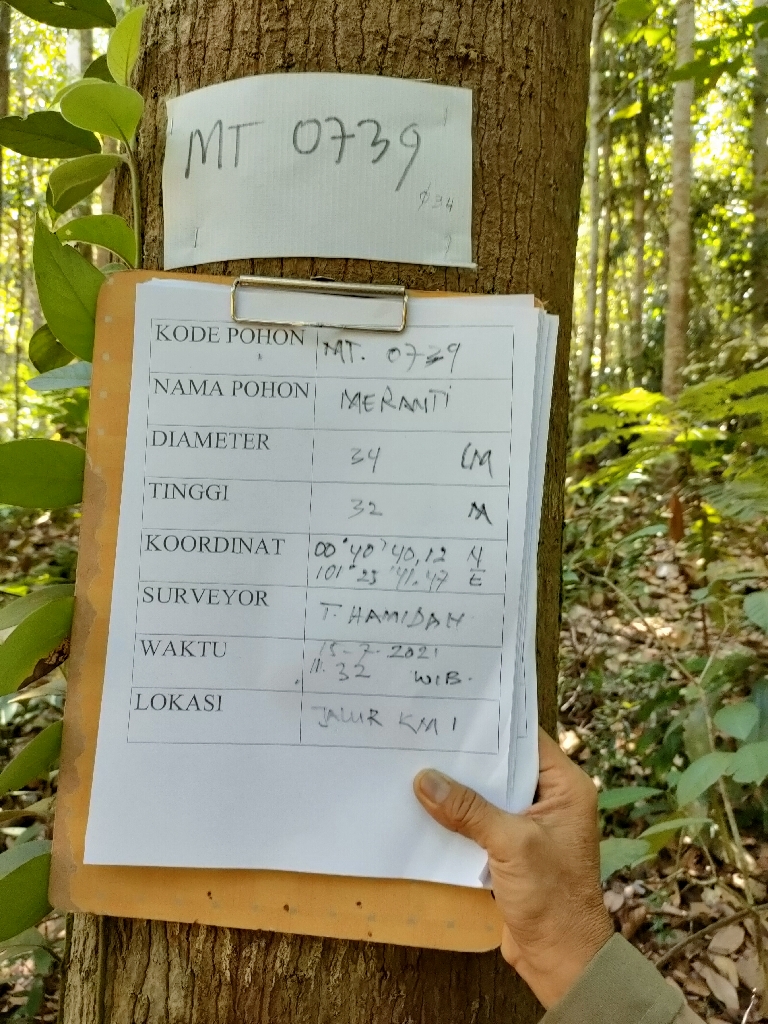 MT 0739
Ø34
KODE POHON MT. 0739
NAMA POHON MERANTI
DIAMETER 34 CM
TINGGI 32 M
KOORDINAT 00°40'40,12 N
101°23'41,47 E
SURVEYOR T. HAMIDAH
WAKTU 15-7-2021
11.32 WIB.
LOKASI JALUR KM 1